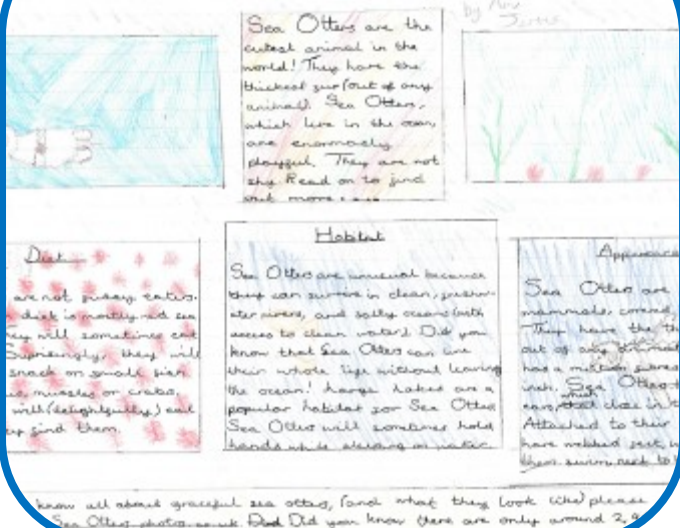 by
Sea Otters are the
cutest animal in the
world! They have the
thickest fur (out of any
animal). Sea Otters,
which live in the ocean,
are enormously
playful. They are not
shy. Read on to find
out more....
Diet
are not fussy eaters.
diet is mostly red sea
they will sometimes eat
Suprisingly, they will
snack on small fish
mussles or crabs,
will (delightfully) eat
find them.
Habitat
Sea Otters are unusual because
they can survive in clean, freshw-
ater rivers, and salty oceans (with
access to clean water). Did you
know that Sea Otters can live
their whole life without leaving
the ocean! Large lakes are a
popular habitat for Sea Otters.
Sea Otters will sometimes hold
hands while sleeping on water.
Appearance
Sea Otters are
mammals, covered
They have the th
out of any
has a million
inch. Sea Otters
ears, which close in
Attached to their
have webbed feet,
them swim, next to
know all about graceful sea otters, (and what they look like) please
Sea Otters photos.co.uk. Did you know there are only around